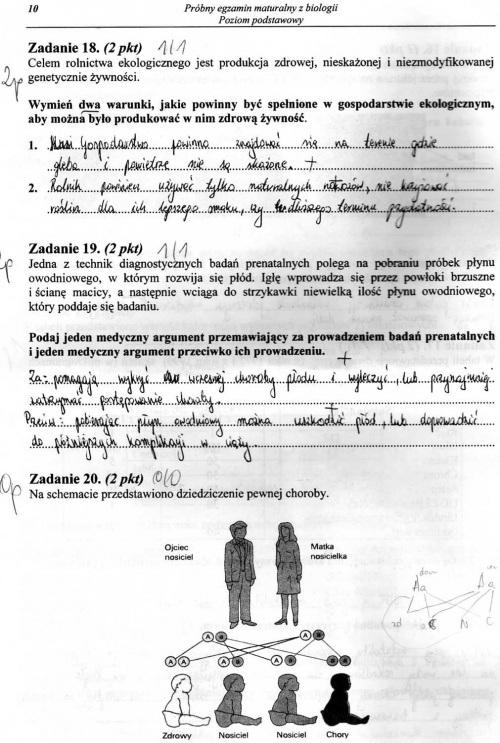 10 Próbny egzamin maturalny z biologii
Poziom podstawowy
Zadanie 18. (2 pkt) 1/1
2p
Celem rolnictwa ekologicznego jest produkcja zdrowej, nieskażonej i niezmodyfikowanej
genetycznie żywności.
Wymień dwa warunki, jakie powinny być spełnione w gospodarstwie ekologicznym,
aby można było produkować w nim zdrową żywność.
1. Gospodarstwo powinno znajdować się na terenie gdzie
gleba i powietrze nie są skażone. +
2. Rolnik powinien używać tylko naturalnych nawozów, nie
roślin dla ich lepszego smaku, czy terminu przydatności.
Zadanie 19. (2 pkt) 1/1
Jedna z technik diagnostycznych badań prenatalnych polega na pobraniu próbek płynu
owodniowego, w którym rozwija się płód. Igłę wprowadza się przez powłoki brzuszne
i ścianę macicy, a następnie wciąga do strzykawki niewielką ilość płynu owodniowego,
który poddaje się badaniu.
Podaj jeden medyczny argument przemawiający za prowadzeniem badań prenatalnych
i jeden medyczny argument przeciwko ich prowadzeniu. +
Za: pomagają wykryć wcześniej choroby płodu i wyleczyć lub przynajmniej
zatrzymać postępowanie choroby.
Przeciw: pobierając płyn owodniowy można uszkodzić płód, lub doprowadzić
do późniejszych komplikacji w ciąży. +
Zadanie 20. (2 pkt) 0/0
0p
Na schemacie przedstawiono dziedziczenie pewnej choroby.
Ojciec
nosiciel
Matka
nosicielka
Aa Aa
zd N C
A A
A A A
Zdrowy Nosiciel Nosiciel Chory